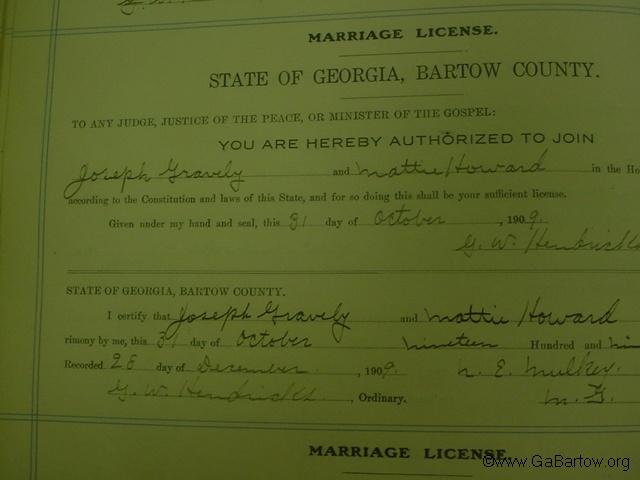 MARRIAGE LICENSE.
STATE OF GEORGIA, BARTOW COUNTY.
TO ANY JUDGE, JUSTICE OF THE PEACE, OR MINISTER OF THE GOSPEL:
YOU ARE HEREBY AUTHORIZED TO JOIN
Joseph Gravely and Mattie Howard in the Ho
according to the Constitution and laws of this State, and for so doing this shall be your sufficient license.
Given under my hand and seal, this 31 day of October, 1909.
G. W. Hendricks
STATE OF GEORGIA, BARTOW COUNTY.
I certify that Joseph Gravely and Mattie Howard
rimony by me, this 31 day of October nineteen Hundred and nin
Recorded 28 day of December, 1909. N. E. Mulkey.
G. W. Hendricks, Ordinary. M. G.
MARRIAGE LICENSE.
©www.GaBartow.org